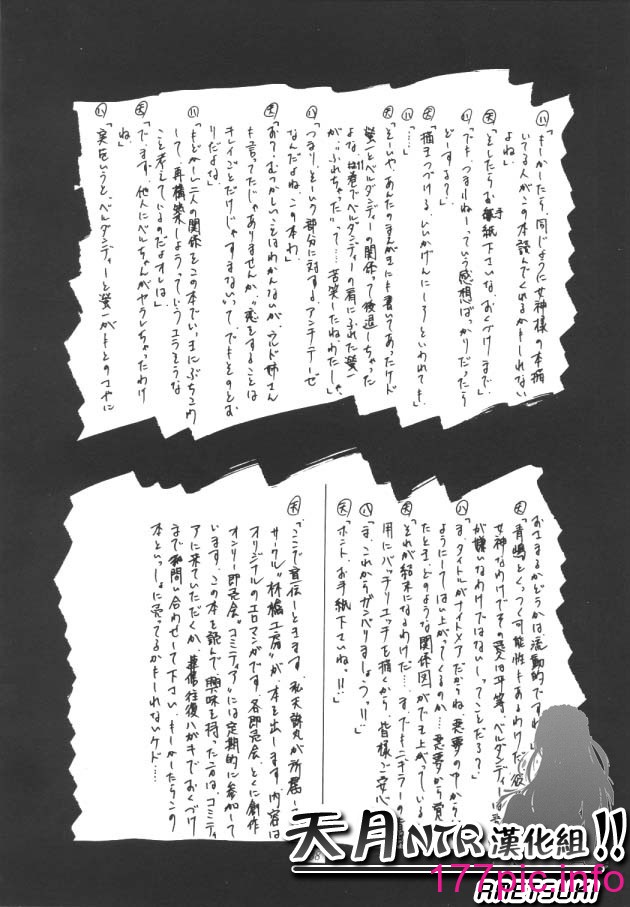 八「もしかしたら、同じように女神様の本描
いてる人がこの本読んでくれるかもしれない
よね。
天「そしたらお手紙下さいな、おくづけまで」
八「でも、つまんねーっていう感想ばっかりだったら
どーする？」
天「描きつづける、いいかげんにしろといわれても」
八「…」
天「そーいや、あんたのまんがにも書いてあったケド
螢一とベルダンディーの関係って後退しちゃった
よな、巻でベルダンディーの肩にふれた螢一
が“ふれちゃった”って…苦笑したねわたしゃ、
八「つまり、そーいう部分に対するアンチテーゼ
なんだよね、この本わ」
天「むつかしいことはわかんないが、ウルド姉さん
も言ってたじゃありませんか、“恋をすることは
キレイごとだけじゃすまない”って、でもそのとお
りだよな」
八「もどかしい二人の関係をこの本でいっきにぶちこわ
して、再構築しようっていうエラそうな
こと考えているのだよオレは」
天「でまず、他人にベルちゃんがヤラレちゃったわけ
ね」
八「実をいうと、ベルダンディーと螢一がもとのさやに
おさまるかどうかは流動的ですね
天「青嶋とくっつく可能性もあるわけだ、彼
女神なわけでその愛は平等、ベルダンディーは
が嫌いなわけではないしってことだろ？」
八「ま、タイトルがナイトメアだからね、悪夢の中から？
ようにしてはい上がってくるのか…悪夢から覚
たとき、どのような関係図ができ上がっている
天「それが結末になるわけだ…、までもニキラーの
用にバッチリエッチを描くから、皆様ご安心
八「ま、これからガンバりましょつ!!」
天「ホント、お手紙下さいね。!!」
天「ここで宣伝しときます、私天誅丸が所属
サークル“林檎工房”が本を出します、内容は
オリジナルのエロマンガです。各即売会、とくに創作
オンリー即売会“コミティア”には定期的に参加して
います。この本を読んで興味を持った方は、コミティ
アに来ていただくか、葉書往復ハガキでおくづけ
まで問い合わせて下さい、もしかしたらこの
本といっしょに売ってるかもしれないケド…
天月NTR漢化組!!
AMETSUKI
177pic.info